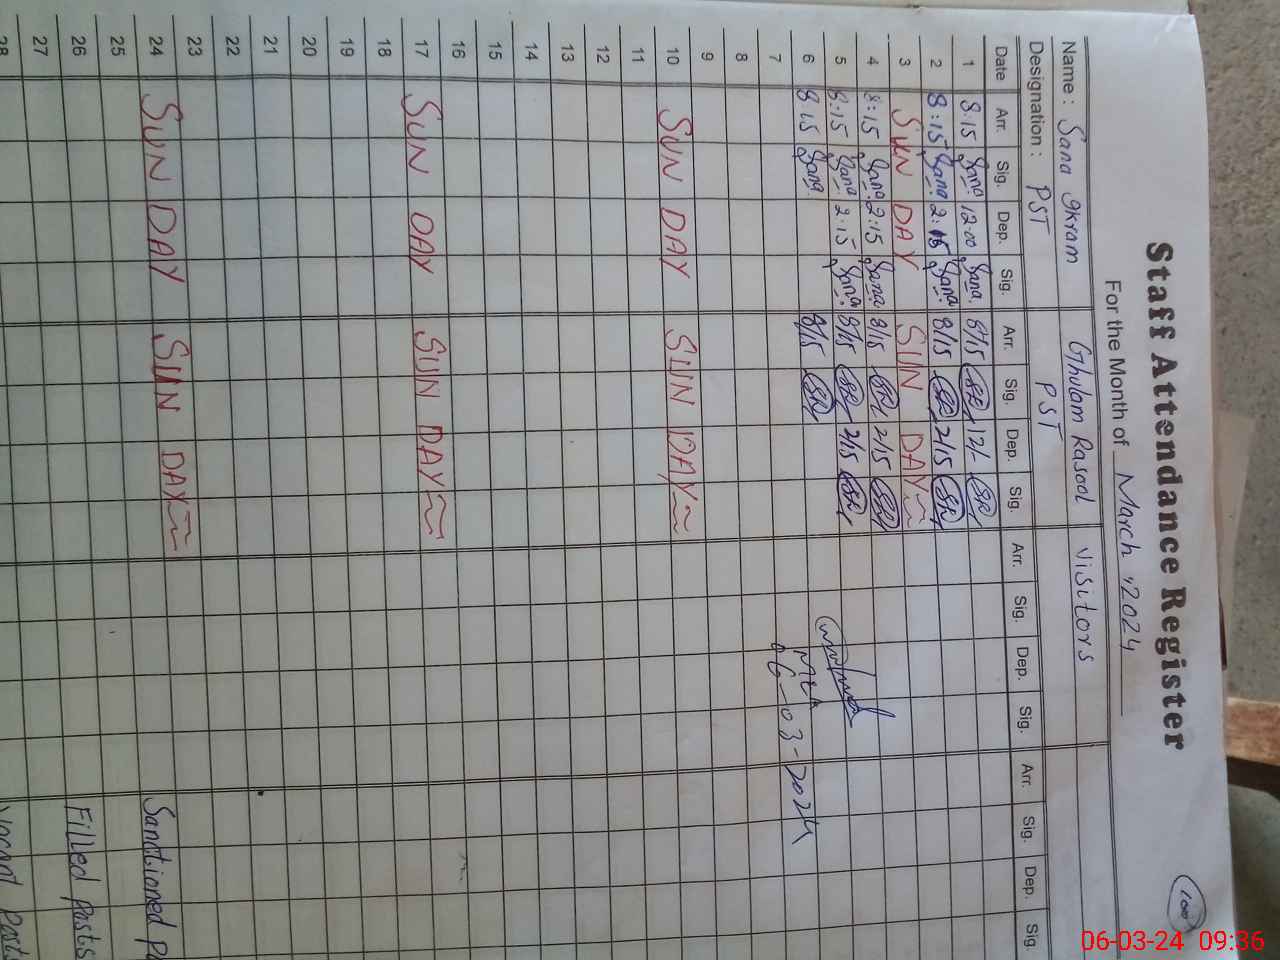 100
Staff Attendance Register
For the Month of March, 2024
Name : Sana Ikram Ghulam Rasool Visitors
Designation : PST PST
Date Arr. Sig. Dep. Sig. Arr. Sig. Dep. Sig. Arr. Sig. Dep. Sig. Arr. Sig. Dep. Sig.
1 8:15 Sana 12:00 Sana 8/15 GR 12/- GR
2 8:15 Sana 2:15 Sana 8/15 GR 2/15 GR
3 SUN DAY SUN DAY
4 8:15 Sana 2:15 Sana 8/15 GR 2/15 GR
5 8:15 Sana 2:15 Sana 8/15 GR 2/15 GR
6 8:15 Sana 8/15 GR
7 06-03-2024
8
9
10 SUN DAY SUN DAY
11
12
13
14
15
16
17 SUN DAY SUN DAY
18
19
20
21
22
23
24 SUN DAY SUN DAY Sanctioned
25
26 Filled Posts
27
28 Vacant Posts
06-03-24 09:36